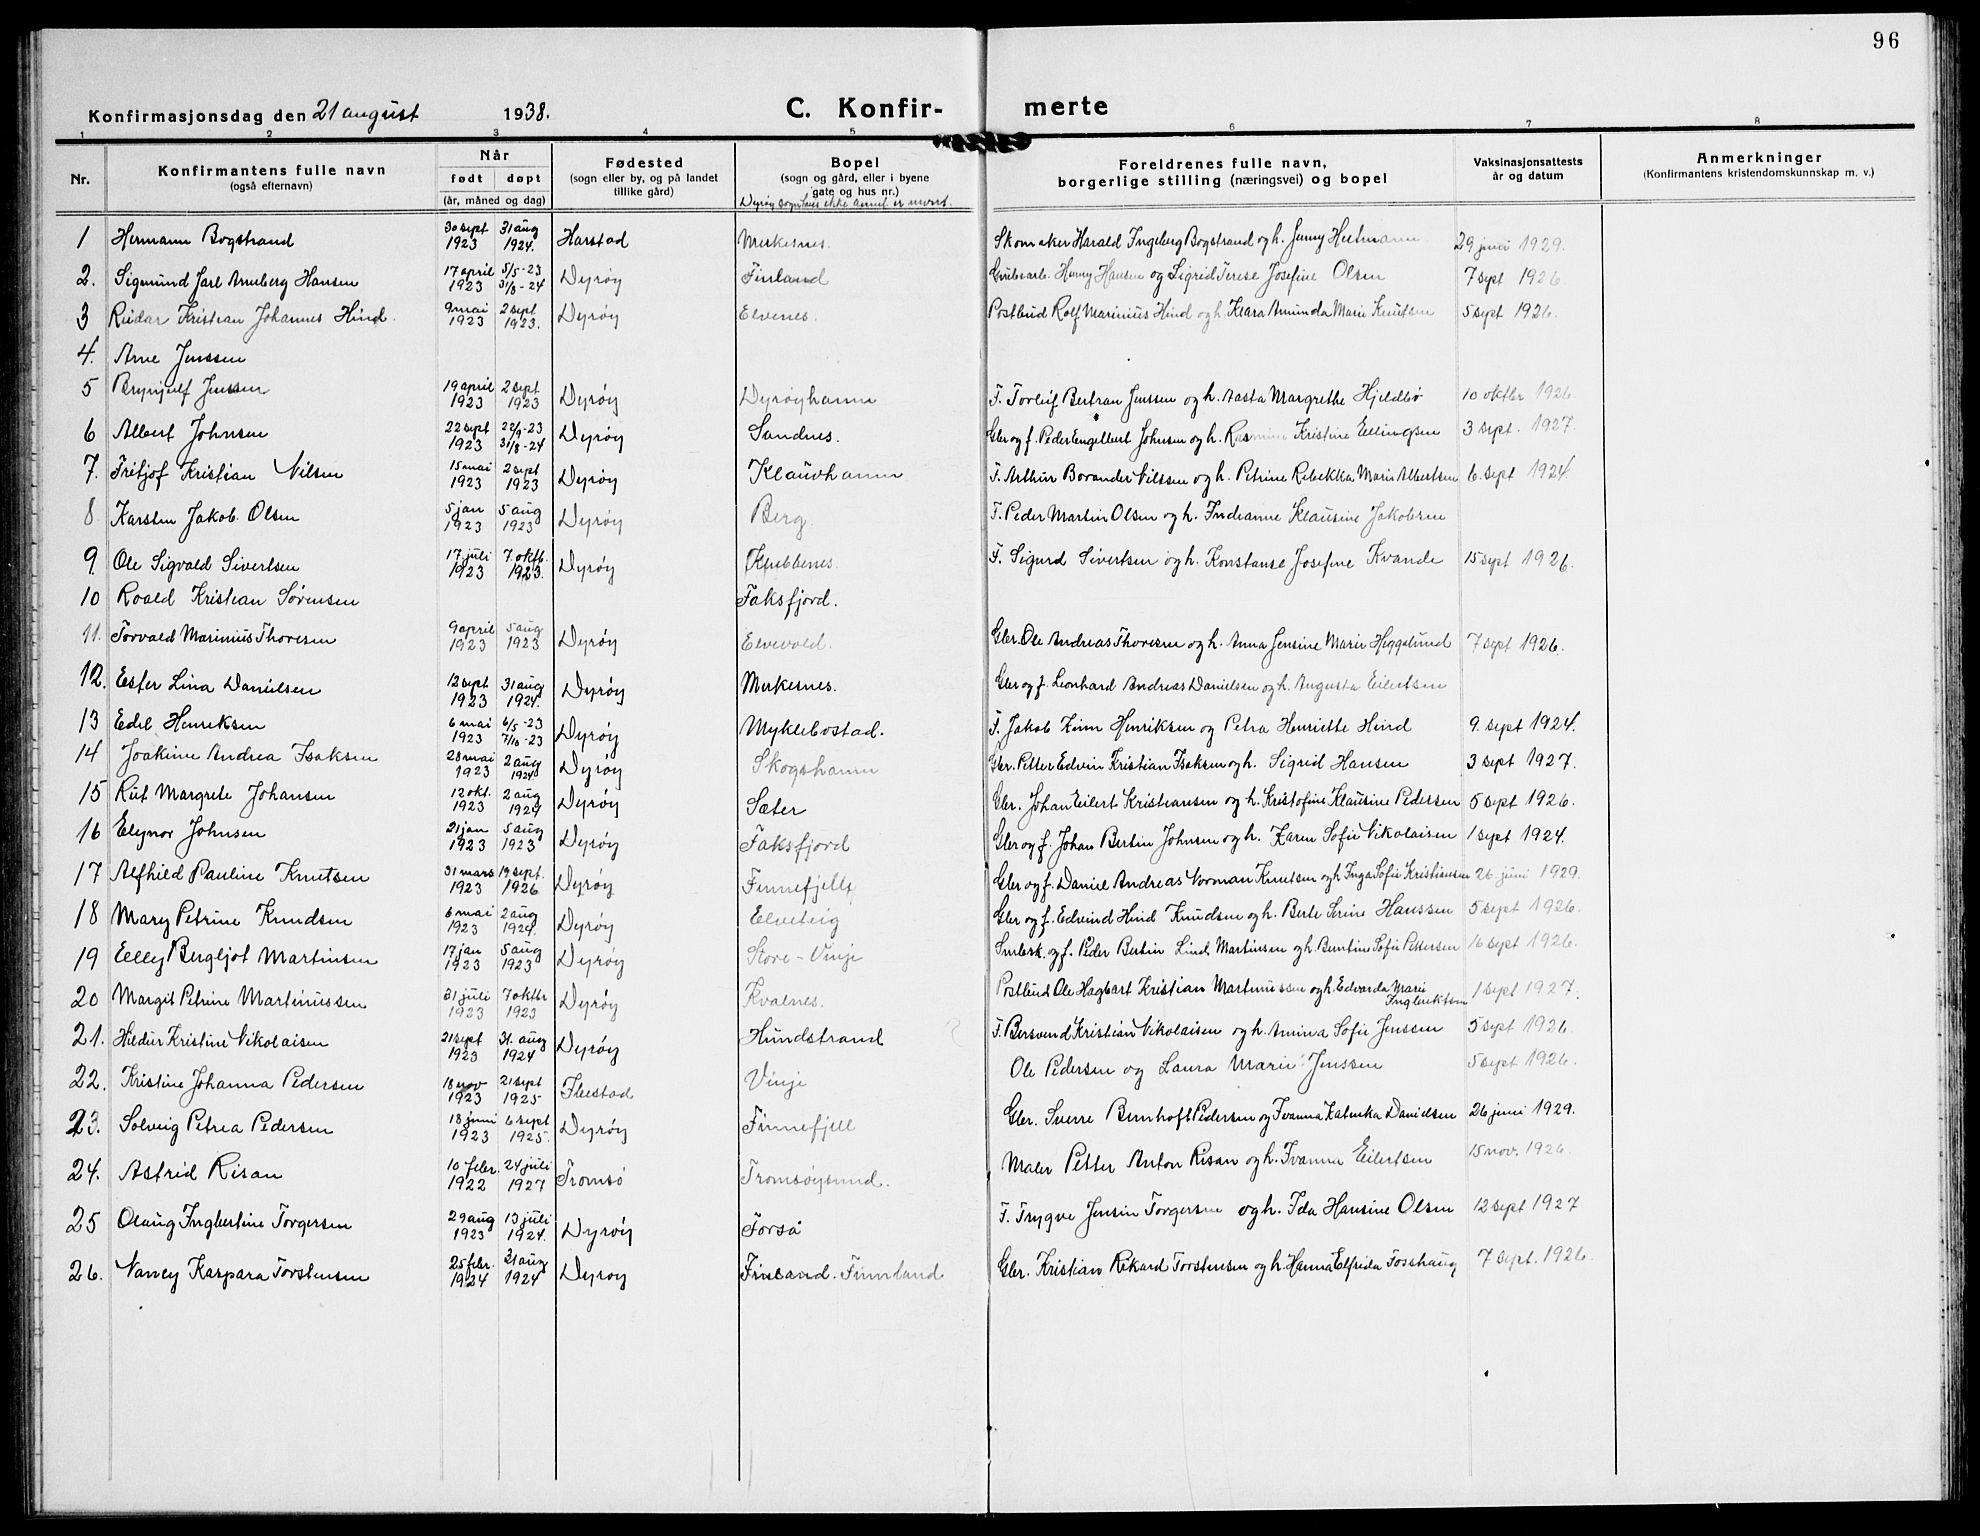 96
Konfirmasjonsdag den 21 august 1938. C. Konfir- merte
1 2 3 4 5 6 7 8
Nr. Konfirmantens fulle navn (også efternavn) Når født døpt (år, måned og dag) Fødested (sogn eller by, og på landet tillike gård) Bopel (sogn og gård, eller i byene gate og hus nr.) Foreldrenes fulle navn, borgerlige stilling (næringsvei) og bopel Vaksinasjonsattests år og datum Anmerkninger (Konfirmantens kristendomskunnskap m. v.)
Dyrøy sogn hvis ikke annet er nevnt.
1 Hermann Bogstrand 30 sept 1923 31 aug 1924. Harstad Merkesnes. Skomaker Harald Ingeberg Bogstrand og h. Jenny 29 juni 1929.
2. Sigmund Jarl Arneberg Hansen 17 april 1923 5/5-23 31/8-24 Dyrøy Finland Henny Hansen og Sigrid Terese Josefine Olsen 7 sept 1926.
3 Reidar Kristian Johannes Hind. 9 mai 1923 2 sept 1923. Dyrøy Elvenes. Postbud Rolf Marinius Hind og h. Klara Amunda Marie Knutsen 5 sept 1926.
4. Arne Jenssen
5 Brynjulf Jenssen 19 april 1923 2 sept 1923 Dyrøy Dyrøyhamn F. Torleif Bertran Jenssen og h. Aasta Margrethe Hjeldbø 10 oktbr 1926
6 Albert Johnsen 22 sept 1923 22/9-23 31/8-24 Dyrøy Sandnes. Gbr og f. Peder Engelbert Johnsen og h. Rasmine Kristine Ellingsen 3 sept. 1927.
7. Fritjof Kristian Nilsen 15 mai 1923 2 sept 1923 Dyrøy Klauvhamn F. Arthur Borander Nilssen og h. Petrine Rebekka Marie Albertsen 6. sept 1924.
8. Karsten Jakob Olsen 5 jan 1923 5 aug 1923 Dyrøy Berg. F. Peder Martin Olsen og h. Indianne Klausine Jakobsen
9. Ole Sigvald Sivertsen 17 juli 1923 7. oktb. 1923. Dyrøy Klubbenes. F. Sigurd Sivertsen og h. Konstanse Josefine Kvande 15 sept 1926.
10 Roald Kristian Sørensen Faksfjord.
11. Torvald Marinius Thoresen 9 april 1923 5 aug 1923 Dyrøy Elvevold. Gbr. Ole Andreas Thoresen og h. Anna Jensine Marie Heggelund 7 sept 1926.
12. Ester Lina Danielsen 12 sept 1923 31 aug 1924. Dyrøy Merkesnes. Gbr og f. Leonhard Andreas Danielsen og h. Augusta Eilertsen
13 Edel Henriksen 6 mai 1923 6/5-23 7/10-23 Dyrøy Myklebostad. F. Jakob Henriksen og Petra Henriette Hind 9. sept 1924.
14 Joakine Andrea Isaksen 28 mai 1923 2 aug 1924 Dyrøy Skogshamn Gbr. Petter Edvin Kristian Isaksen og h. Sigrid Hansen 3 sept 1927.
15 Rut Margrete Johansen 12 okt. 1923 2 aug 1924 Dyrøy Sæter Gbr. Johan Eilert Kristiansen og h. Kristofine Klausine Pedersen 5 sept 1926.
16 Elynor Johnsen 21 jan 1923 5 aug 1923 Dyrøy Faksfjord Gbr og f. Johan Bertin Johnsen og h. Karen Sofie Nikolaisen 1 sept 1924.
17 Alfhild Pauline Knutsen 31 mars 1923 19 sept. 1926 Dyrøy Finnefjell Gbr og f. Daniel Andreas Norman Knutsen og h Inga Sofie Kristiansen 26 juni 1929.
18 Mary Petrine Knudsen 6 mai 1923 2 aug 1924. Dyrøy Elveteig Gbr og f. Edvind Hind Knudsen og h. Berte Serine Hanssen 5 sept 1926.
19 Elly Bergljot Martinsen 17 jan 1923 5 aug 1923 Dyrøy Store-Vinje og f. Peder Bertin Lind Martinsen og h. Berntine Sofie Pettersen 16 sept 1926.
20 Margit Petrine Martinussen 31 juli 1923 7 oktbr 1923 Dyrøy Kvalnes. Postbud Ole Hagbart Kristian Martinussen og h. Edvarda Marie Ingebriktsen 1 sept 1927.
21. Hildur Kristine Nikolaisen 21 sept 1923 31. aug 1924 Dyrøy Hundstrand F. Bersvend Kristian Nikolaisen og h. Amina Sofie Jenssen 5 sept 1926.
22. Kristine Johanna Pedersen 18 nov 1923 21 sept 1925 Vinje Ole Pedersen og Laura Marie Jenssen 5 sept 1926.
23. Solveig Petrea Pedersen 18 juni 1923 6 sept 1925. Dyrøy Finnefjell Gbr. Sverre Bernhoft Pedersen og Ivanna Katinka Danielsen 26 juni 1929.
24. Astrid Risan 10 febr. 1922 24 juli 1927 Tromsø Tromsøysund. Maler Petter Anton Risan og h. Ivanna Eilertsen 15 nov. 1926.
25 Olaug Ingbertine Torgersen 29 aug 1923 13 juli 1924. Dyrøy Forså F. Trygve Jensin Torgersen og h. Ida Hansine Olsen 12 sept 1927
26. Nancy Kaspara Torstensen 25 febr. 1924 31 aug 1924 Dyrøy Finland. Finnland Gbr. Kristian Rikard Torstensen og h. Hanna Elfrida Fosshaug 7 sept. 1926.